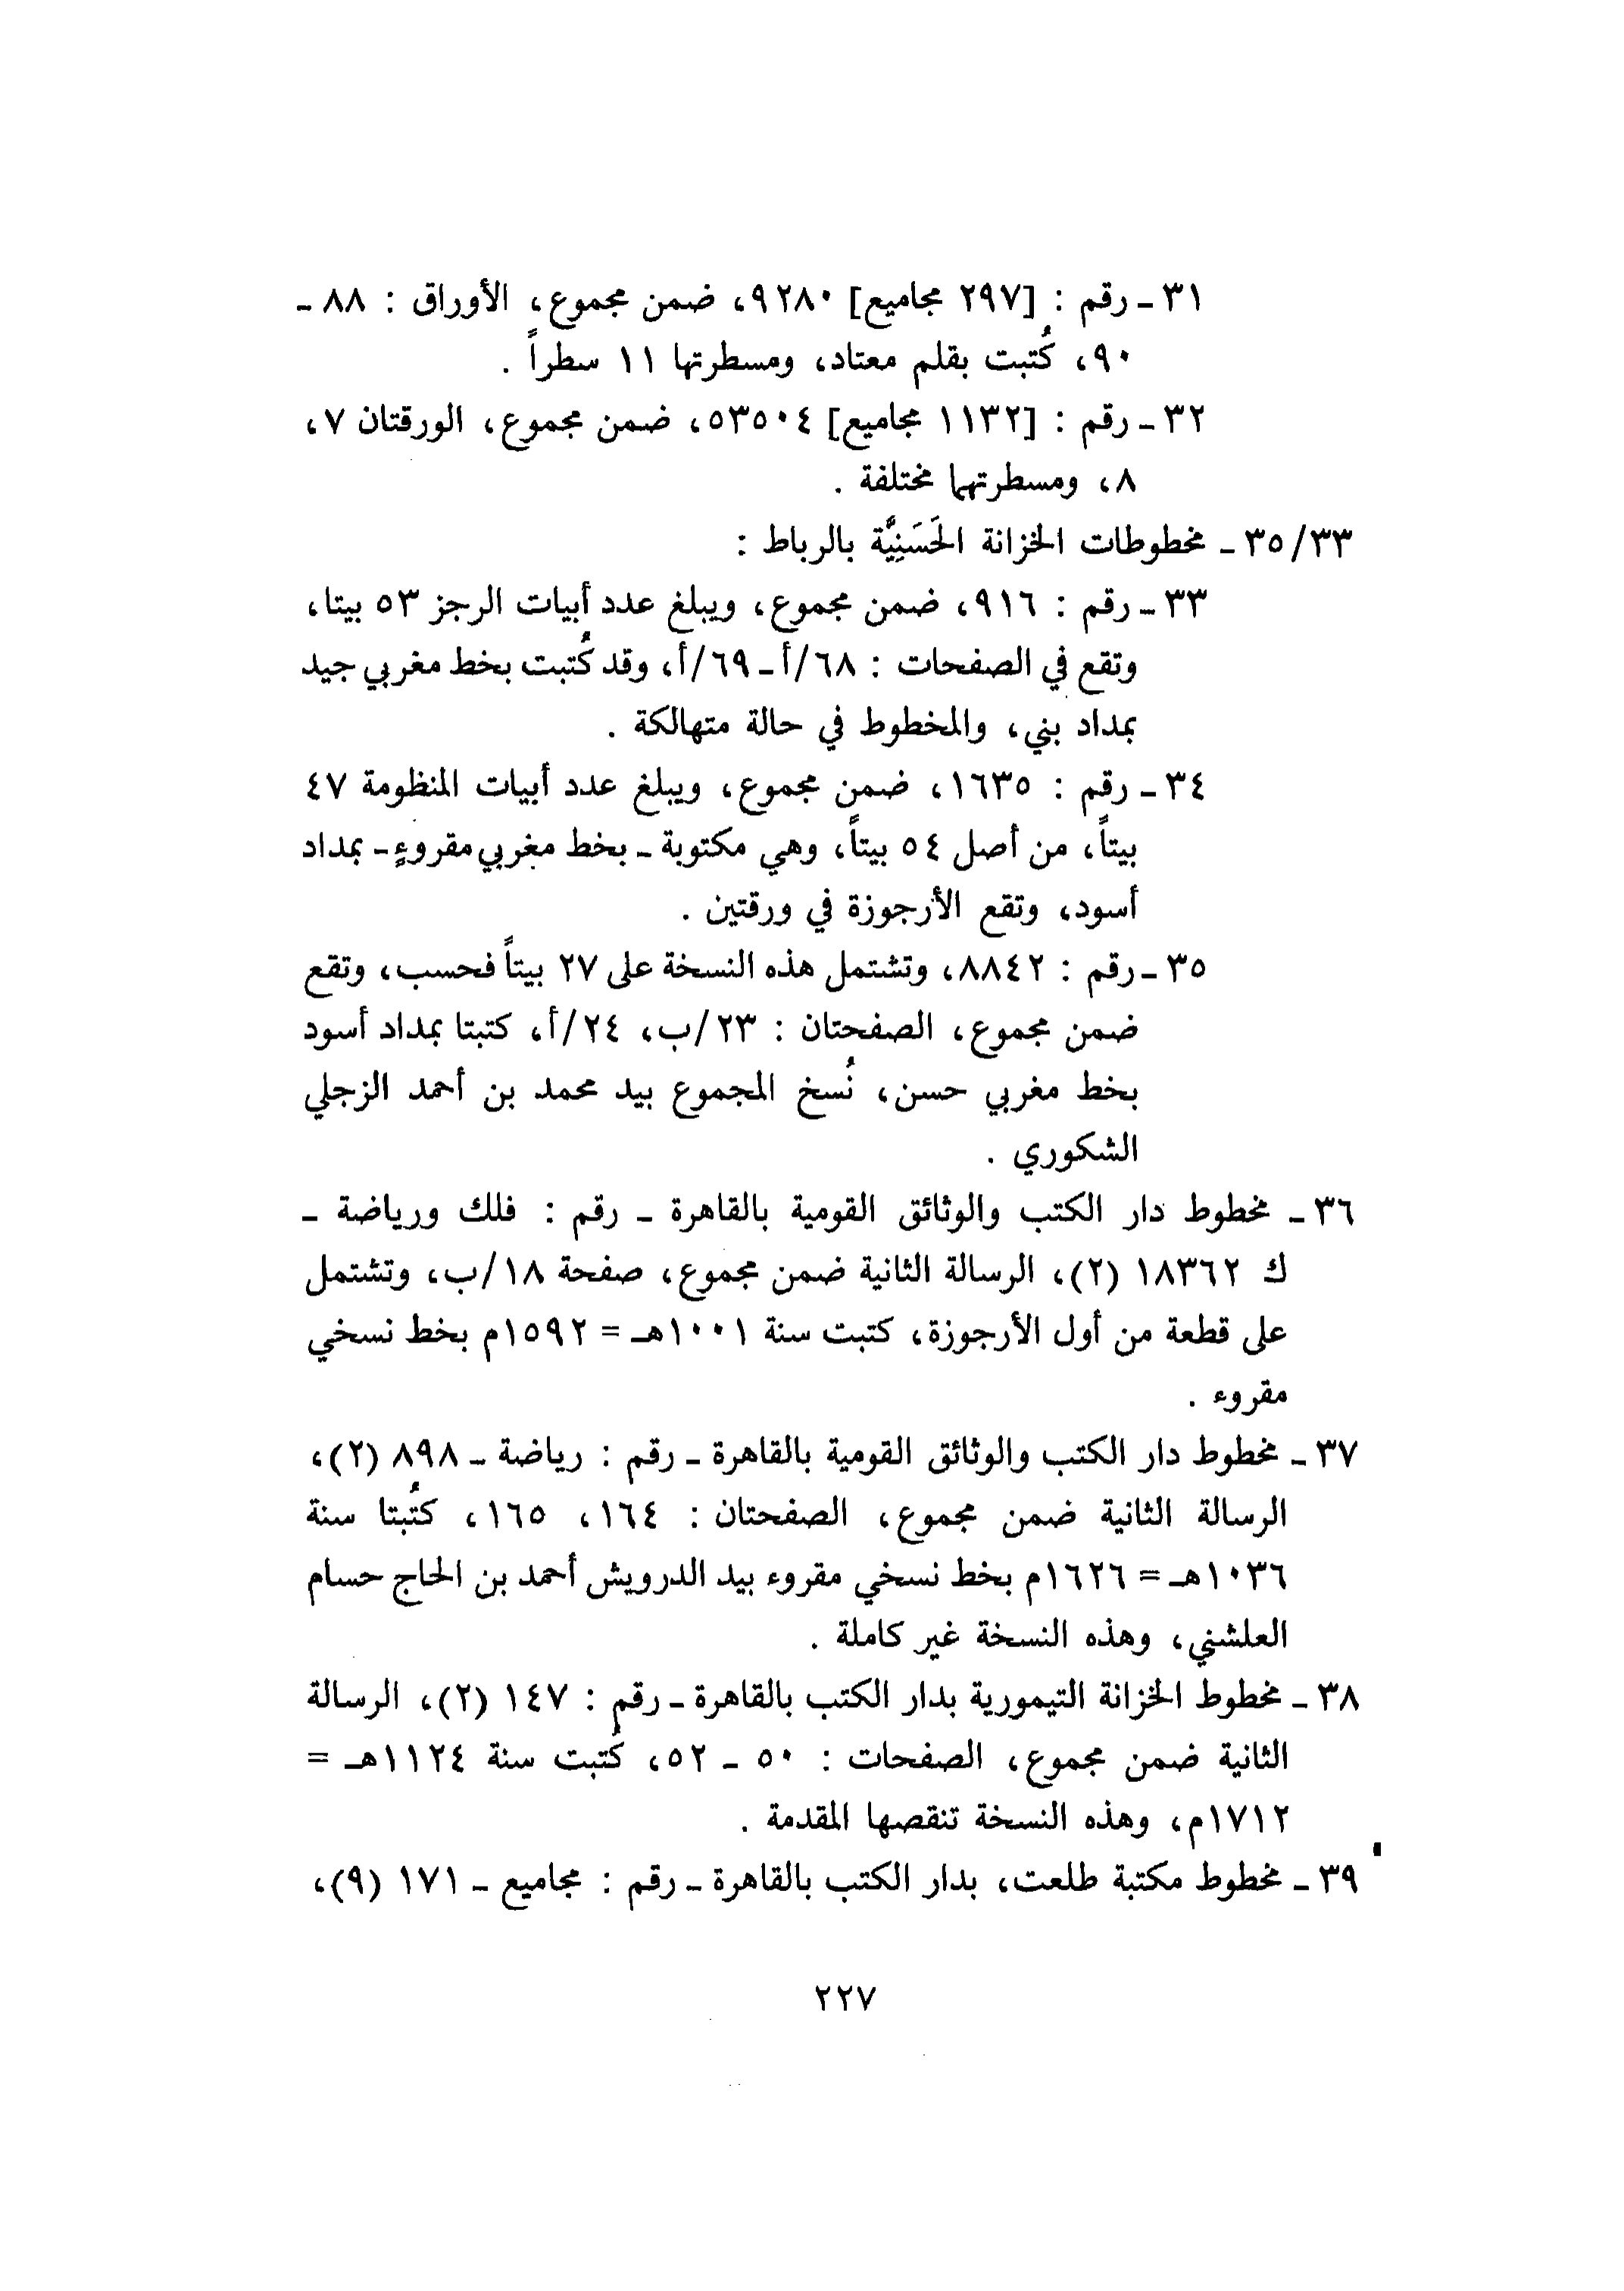 ٣١ ـ رقم : [٢٩٧ مجاميع] ٩٢٨٠، ضمن مجموع، الأوراق : ٨٨ ـ
٩٠، كُتبت بقلم معتاد، ومسطرتها ١١ سطراً .
٣٢ ـ رقم : [١١٣٢ مجاميع] ٥٣٥٠٤، ضمن مجموع، الورقتان ٧،
٨، ومسطرتهما مختلفة .
٣٥/٣٣ ـ مخطوطات الخزانة الحَسَنِيَّة بالرباط :
٣٣ ـ رقم : ٩١٦، ضمن مجموع، ويبلغ عدد أبيات الرجز ٥٣ بيتا،
وتقع في الصفحات : ٦٨/أ ـ ٦٩/أ، وقد كُتبت بخط مغربي جيد
بمداد بني، والمخطوط في حالة متهالكة .
٣٤ ـ رقم : ١٦٣٥، ضمن مجموع، ويبلغ عدد أبيات المنظومة ٤٧
بيتاً، من أصل ٥٤ بيتاً، وهي مكتوبة ـ بخط مغربي مقروءٍ ـ بمداد
أسود، وتقع الأرجوزة في ورقتين .
٣٥ ـ رقم : ٨٨٤٢، وتشتمل هذه النسخة على ٢٧ بيتاً فحسب، وتقع
ضمن مجموع، الصفحتان : ٢٣/ب، ٢٤/أ، كتبتا بمداد أسود
بخط مغربي حسن، نُسخ المجموع بيد محمد بن أحمد الزجلي
الشكوري .
٣٦ ـ مخطوط دار الكتب والوثائق القومية بالقاهرة ـ رقم : فلك ورياضة ـ
ك ١٨٣٦٢ (٢)، الرسالة الثانية ضمن مجموع، صفحة ١٨/ب، وتشتمل
على قطعة من أول الأرجوزة، كتبت سنة ١٠٠١هـ = ١٥٩٢م بخط نسخي
مقروء .
٣٧ ـ مخطوط دار الكتب والوثائق القومية بالقاهرة ـ رقم : رياضة ـ ٨٩٨ (٢)،
الرسالة الثانية ضمن مجموع، الصفحتان : ١٦٤، ١٦٥، كُتبتا سنة
١٠٣٦هـ = ١٦٢٦م بخط نسخي مقروء بيد الدرويش أحمد بن الحاج حسام
العلشني، وهذه النسخة غير كاملة .
٣٨ ـ مخطوط الخزانة التيمورية بدار الكتب بالقاهرة ـ رقم : ١٤٧ (٢)، الرسالة
الثانية ضمن مجموع، الصفحات : ٥٠ ـ ٥٢، كُتبت سنة ١١٢٤هـ =
١٧١٢م، وهذه النسخة تنقصها المقدمة .
٣٩ ـ مخطوط مكتبة طلعت، بدار الكتب بالقاهرة ـ رقم : مجاميع ـ ١٧١ (٩)،
٢٢٧